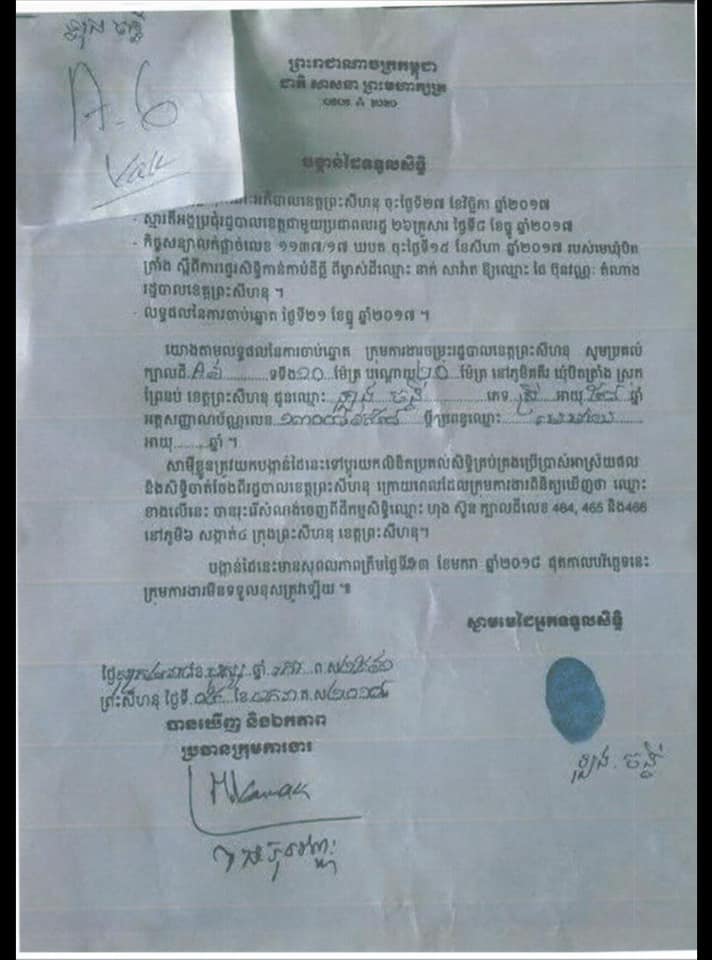 ឡុង ចន្ធី
A-6
ព្រះរាជាណាចក្រកម្ពុជា
ជាតិ សាសនា ព្រះមហាក្សត្រ
បង្កាន់ដៃទទួលសិទ្ធិ
អភិបាលខេត្តព្រះសីហនុ ចុះថ្ងៃទី២៧ ខែវិច្ឆិកា ឆ្នាំ២០១៧
- ស្មារតីអង្គប្រជុំរដ្ឋបាលខេត្តជាមួយប្រជាពលរដ្ឋ ២៦គ្រួសារ ថ្ងៃទី៨ ខែធ្នូ ឆ្នាំ២០១៧
- កិច្ចសន្យាលក់ផ្តាច់លេខ ១១៣៧/១៧ ឃបត ចុះថ្ងៃទី១៥ ខែសីហា ឆ្នាំ២០១៧ របស់មេឃុំបិត
ត្រាំង ស្តីពីការផ្ទេរសិទ្ធិកាន់កាប់ដីធ្លី ពីម្ចាស់ដីឈ្មោះ នាក់ សាវ៉ាត ឱ្យឈ្មោះ ប៊ុនវណ្ណៈ តំណាង
រដ្ឋបាលខេត្តព្រះសីហនុ ។
- លទ្ធផលនៃការចាប់ឆ្នោត ថ្ងៃទី២១ ខែធ្នូ ឆ្នាំ២០១៧ ។
យោងតាមលទ្ធផលនៃការចាប់ឆ្នោត ក្រុមការងារចម្រុះរដ្ឋបាលខេត្តព្រះសីហនុ សូមប្រគល់
ក្បាលដី A៦ ទទឹង ១០ ម៉ែត្រ បណ្តោយ ២០ ម៉ែត្រ នៅភូមិតគីរ ឃុំបិតត្រាំង ស្រុក
ព្រៃនប់ ខេត្តព្រះសីហនុ ជូនឈ្មោះ ឡុង ចន្ធី ភេទ ស្រី អាយុ ឆ្នាំ
អត្តសញ្ញាណប័ណ្ណលេខ ប្តី/ប្រពន្ធឈ្មោះ
អាយុ......ឆ្នាំ ។
សាមីខ្លួនត្រូវយកបង្កាន់ដៃនេះទៅប្តូរយកលិខិតប្រគល់សិទ្ធិគ្រប់គ្រងប្រើប្រាស់អាស្រ័យផល
និងសិទ្ធិចាត់ចែងពីរដ្ឋបាលខេត្តព្រះសីហនុ ក្រោយពេលដែលក្រុមការងារពិនិត្យឃើញថា ឈ្មោះ
ខាងលើនេះ បានរុះរើសំណង់ចេញពីដីកម្មសិទ្ធិឈ្មោះ ហុង ស៊ុន ក្បាលដីលេខ 464, 465 និង466
នៅភូមិ៦ សង្កាត់៤ ក្រុងព្រះសីហនុ ខេត្តព្រះសីហនុ។
បង្កាន់ដៃនេះមានសុពលភាពត្រឹមថ្ងៃទី ខែមករា ឆ្នាំ២០១៨ ផុតកាលបរិច្ឆេទនេះ
ក្រុមការងារមិនទទួលខុសត្រូវឡើយ ៕
ស្នាមមេដៃអ្នកទទួលសិទ្ធិ
ព្រះសីហនុ ថ្ងៃទី ០៤ ខែ មករា គ.ស ២០១៨
បានឃើញ និងឯកភាព
ប្រធានក្រុមការងារ
ឡុង ចន្ធី